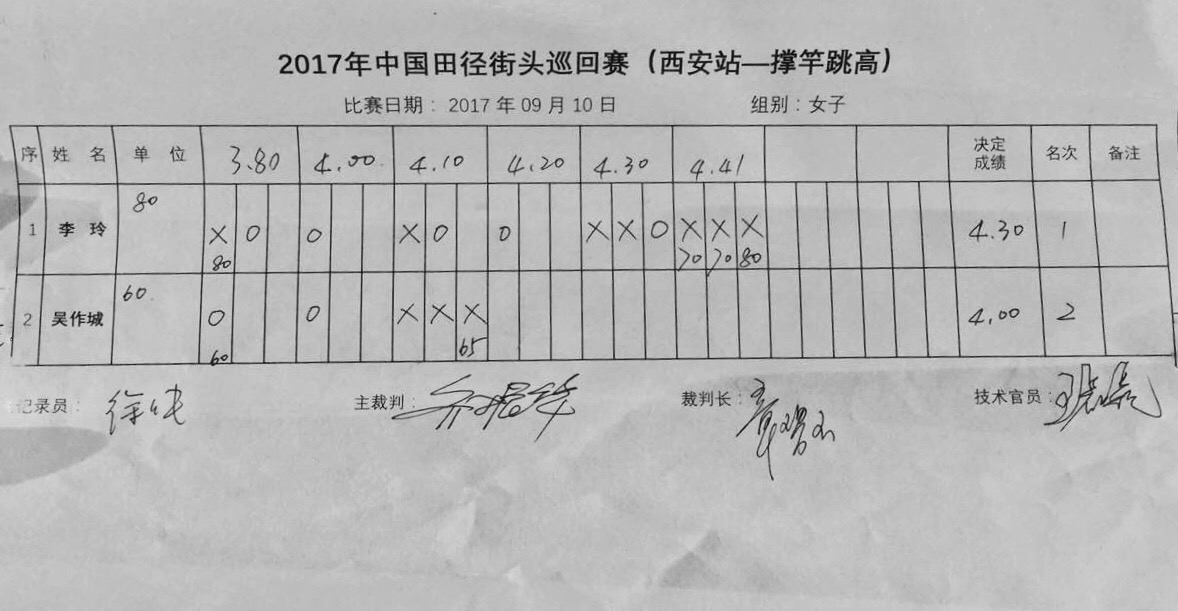 2017年中国田径街头巡回赛（西安站—撑竿跳高）
比赛日期：2017 年 09 月 10 日 组别：女子
序 姓 名 单 位 3.80 4.00 4.10 4.20 4.30 4.41 决定成绩 名次 备注
80
1 李 玲 X O O X O O X X O X X X 4.30 1
80 70 70 80
60
2 吴作城 O O X X X 4.00 2
60 65
记录员： 主裁判： 裁判长： 技术官员：